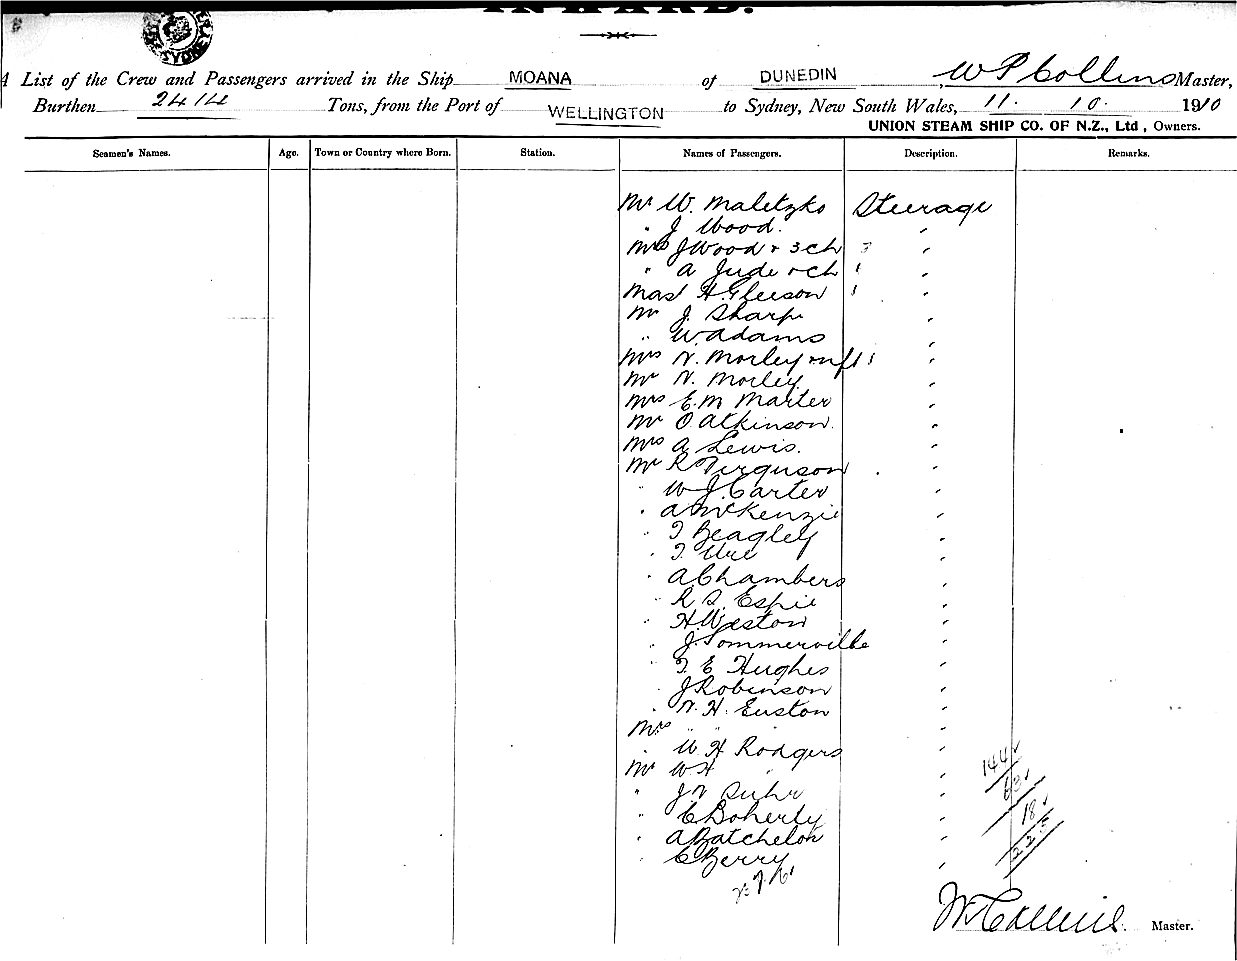 INWARD.
SYDNEY
A List of the Crew and Passengers arrived in the Ship MOANA of DUNEDIN, W P Collins Master,
Burthen 2414 Tons, from the Port of WELLINGTON to Sydney, New South Wales, 11. 10. 1910
UNION STEAM SHIP CO. OF N.Z., Ltd, Owners.
Seamen's Names. Age. Town or Country where Born. Station. Names of Passengers. Description. Remarks.
Mr W. Maletzko Steerage
" J Wood. "
Mrs J Wood + 3 ch 3 "
" A Jude + ch 1 "
Mas H Gleeson 1 "
Mr J. Sharp "
" W Adams "
Mrs N. Morley + inft 1 "
Mr N. Morley "
Mrs E. M Marter "
Mr O Atkinson "
Mrs A Lewis. "
Mr R Ferguson "
" W J. Carter "
" A McKenzie "
" T Beagley "
" T. Ure "
" A Chambers "
" R S. Espie "
" H. Weston "
" J. Sommerville "
" T. E Hughes "
" J Robinson "
" N. H. Euston "
Mrs " " "
" W H Rodgers "
Mr W H " "
" J N Suhr "
" C Doherty "
" A Batchelor "
" C Berry "
144
63
18
225
W P Collins Master.